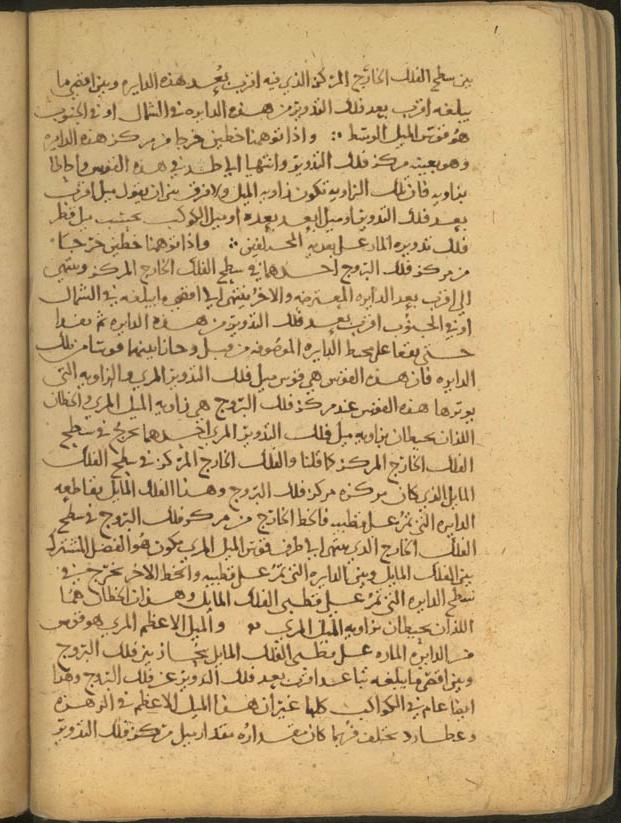 بين سطح الفلك الخارج المركز الذي فيه اقرب بعد هذه الدايره وبين اقصى ما
يبلغه اقرب بعد فلك التدوير من هذه الدايره في الشمال او في الجنوب
هو قوس الميل الوسط واذا توهمنا خطين خرجا من مركز هذه الدايره
وهو بعينه مركز فلك التدوير وانتهيا الى طرفي هذه القوس واحاطا
بزاويه فان تلك الزاويه تكون زاويه الميل ولا فرق بين ان يقول ميل اقرب
بعد فلك التدوير او ميل ابعد بعده او ميل الكوكب بحسب ميل قطر
فلك تدويره المار على بعديه المختلفين واذا توهمنا خطين خرجا
من مركز فلك البروج احدهما في سطح الفلك الخارج المركز وينتهي
الى اقرب بعد الدايره المعترضه والاخر ينتهي الى اقصى ما يبلغه في الشمال
او في الجنوب اقرب بعد فلك التدوير من هذه الدايره ثم نفدا
حتى يقعا على محيط الدايره الموصوفه من قبل وحازا بينهما قوسا من تلك
الدايره فان هذه القوس هي قوس ميل فلك التدوير المري والزاويه التي
يوترها هذه القوس عند مركز فلك البروج هي زاويه الميل المري والخطان
اللذان يحيطان بزاويه ميل فلك التدوير المري احدهما يخرج في سطح
الفلك الخارج المركز كما قلنا والفلك الخارج المركز في سطح الفلك
المايل الذي كان مركزه مركز فلك البروج وهذا الفلك المايل يقاطعه
الدايره التي تمر على قطبيه فالخط الخارج من مركز فلك البروج في سطح
الفلك الخارج الذي ينتهي الى طرف قوس الميل المري يكون هو الفصل المشترك
بين الفلك المايل وبين الدايره التي تمر على قطبيه والخط الاخر يخرج في
سطح الدايره التي تمر على قطبي الفلك المايل وهذان الخطان هما
اللذان يحيطان بزاويه الميل المري والميل الاعظم المري هو قوس
من الدايره الماره على قطبي الفلك المايل ينحاز بين فلك البروج
وبين اقصى ما يبلغه تباعد اقرب بعد فلك التدوير عن فلك البروج وهذا
ايضا عام في الكواكب كلها غير ان هذا الميل الاعظم في الزهره
وعطارد يختلف فربما كان مقداره مقدار ميل مركز فلك التدوير